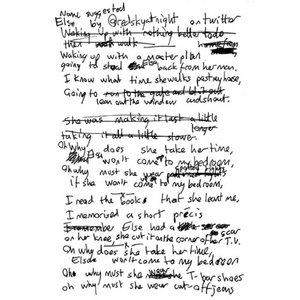 Name suggested
Else by @redskyatnight on twitter
Waking up with nothing better to do
then walk
Waking up with a master plan
going to steal back from her man,
I know what time she walks past my house,
Going to run to the gate and
lean out the window and shout.
She was making it last a little
longer
taking it all a little slower
Oh Why does she take her time,
Else won't come to my bedroom,
Oh why must she wear
if she won't come to my bedroom,
I read the book that she leant me,
I memorised a short précis
I remember Else had a scar
on her knee, she cut it on the corner of her T.V.
Oh why does she take her time,
Else won't come to my bedroom
Oh why must she T-bar shoes
oh why must she wear cut-off jeans